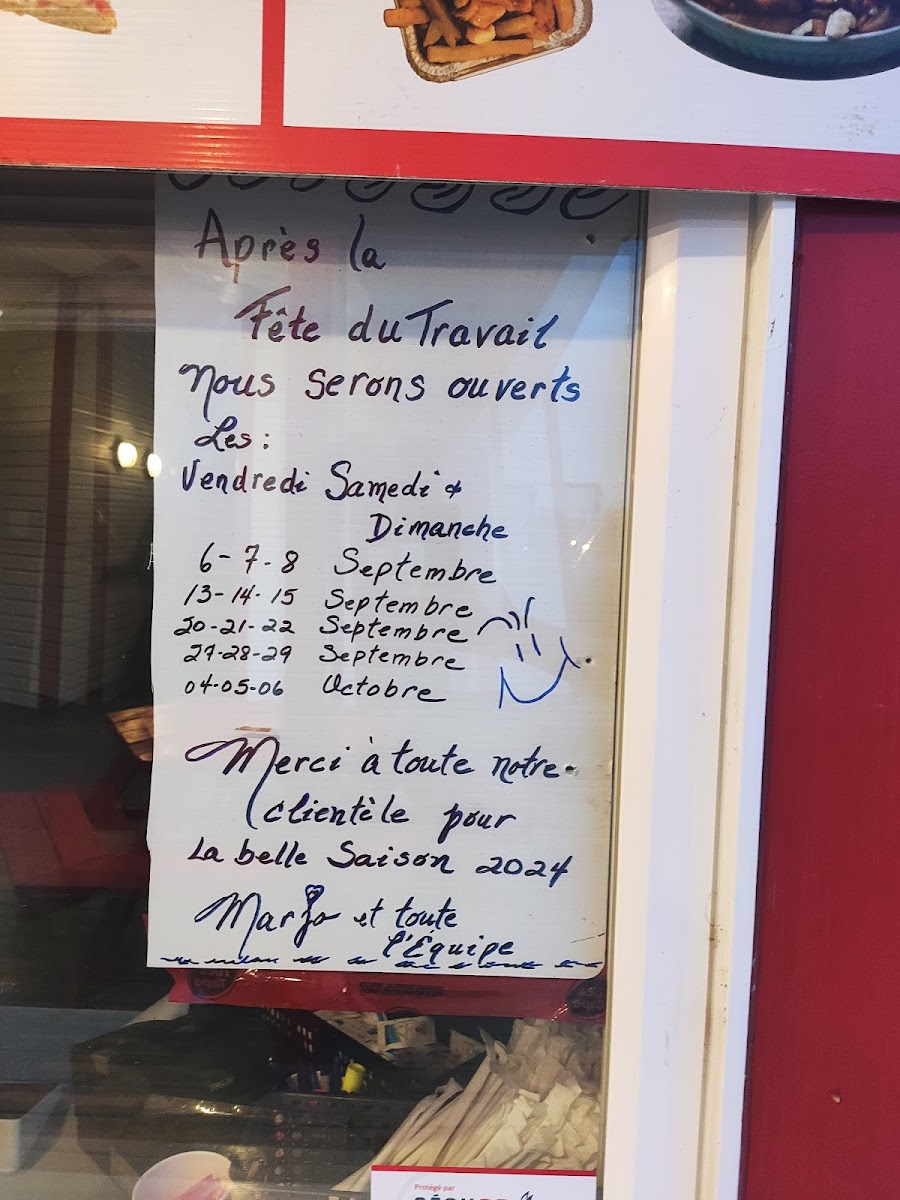 Après la
Fête du Travail
Nous serons ouverts
Les:
Vendredi Samedi &
Dimanche
6-7-8 Septembre
13-14-15 Septembre
20-21-22 Septembre
27-28-29 Septembre
04-05-06 Octobre
Merci à toute notre
clientèle pour
La belle Saison 2024
Marjo et toute
l'Équipe
Protégé par